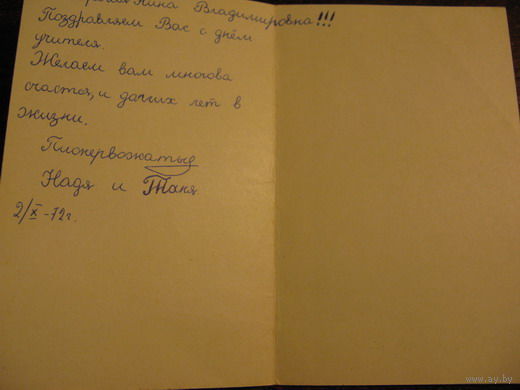 Нина Владимировна!!!
Поздравляем Вас с днём
учителя.
Желаем вам многова
счастья, и долгих лет в
жизни.
Пионервожатые
Надя и Таня
2/X -72г.
www.ay.by